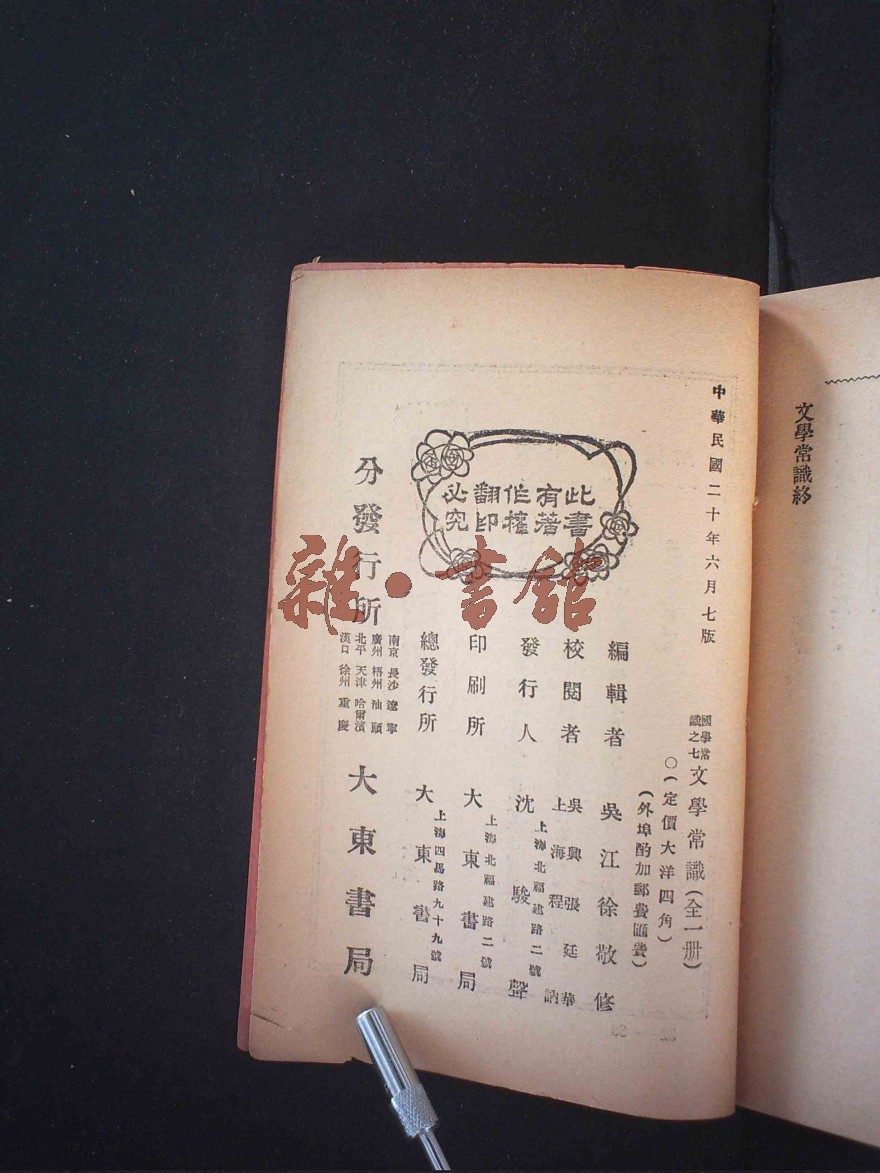 文學常識終
中華民國二十年六月七版
國學常
識之七
文學常識(全一册)
〇(定價大洋四角)
(外埠酌加郵費匯費)
此書
有著
作權
翻印
必究
編輯者 吳江徐敬修
校閱者 吳興張廷華
上海程訥
發行人 沈駿聲
上海北福建路二號
印刷所 大東書局
上海北福建路二號
總發行所 大東書局
上海四馬路九十九號
分發行所
南京 長沙 遼寧
廣州 梧州 汕頭
北平 天津 哈爾濱
漢口 徐州 重慶
大東書局
雜·書館